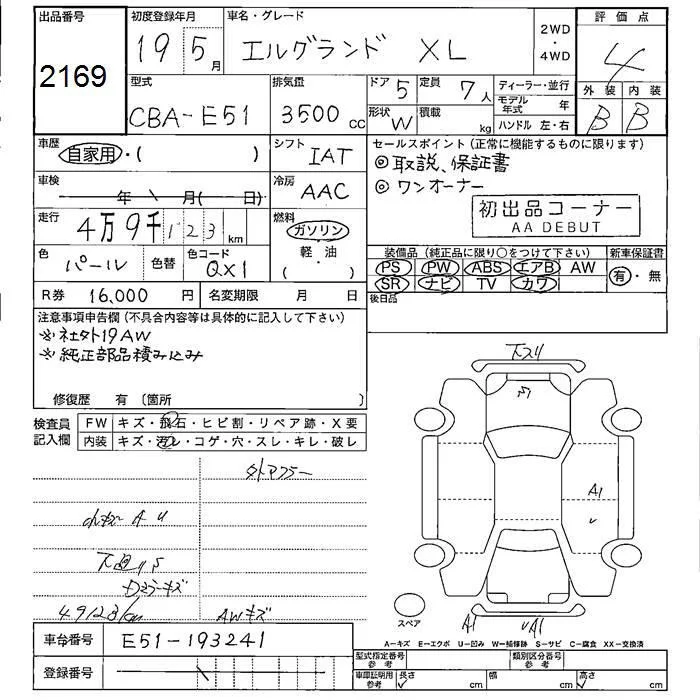 出品番号
2169
初度登録年月
19 5月
車名・グレード
エルグランド XL
2WD
・
4WD
評価点
4
外装 内装
B B
型式
CBA-E51
排気量
3500 cc
ドア 5
定員 7人
形状 W
積載 kg
ディーラー・並行
モデル年式 年
ハンドル 左・右
車歴
自家用・( )
シフト
IAT
車検
年 月( 日)
冷房
AAC
走行
4万9千123 km
燃料
ガソリン
軽油
( )
色
パール
色替
色コード
QX1
R券 16,000 円
名変期限 月 日
セールスポイント(正常に機能するものに限ります)
◎取説、保証書
◎ワンオーナー
初出品コーナー
AA DEBUT
装備品(純正品に限り○をつけて下さい)
PS PW ABS エアB AW
SR ナビ TV カワ
新車保証書
有・無
後日品
注意事項申告欄(不具合内容等は具体的に記入して下さい)
※社外19AW
※純正部品積み込み
修復歴 有〔箇所 〕
検査員記入欄
FW キズ・飛石・ヒビ割・リペア跡・X要
内装 キズ・汚レ・コゲ・穴・スレ・キレ・破レ
外マフラー
小キズ A U
Dミラーキズ
49123km
AWキズ
下スリ
A1
A1
A1
スペア
A-キズ E-エクボ U-凹み W-補修跡 S-サビ C-腐食 XX-交換済
車台番号 E51-193241
登録番号
型式指定番号
参考
類別区分番号
参考
車庫証明用
参考
長さ cm
幅 cm
高さ cm